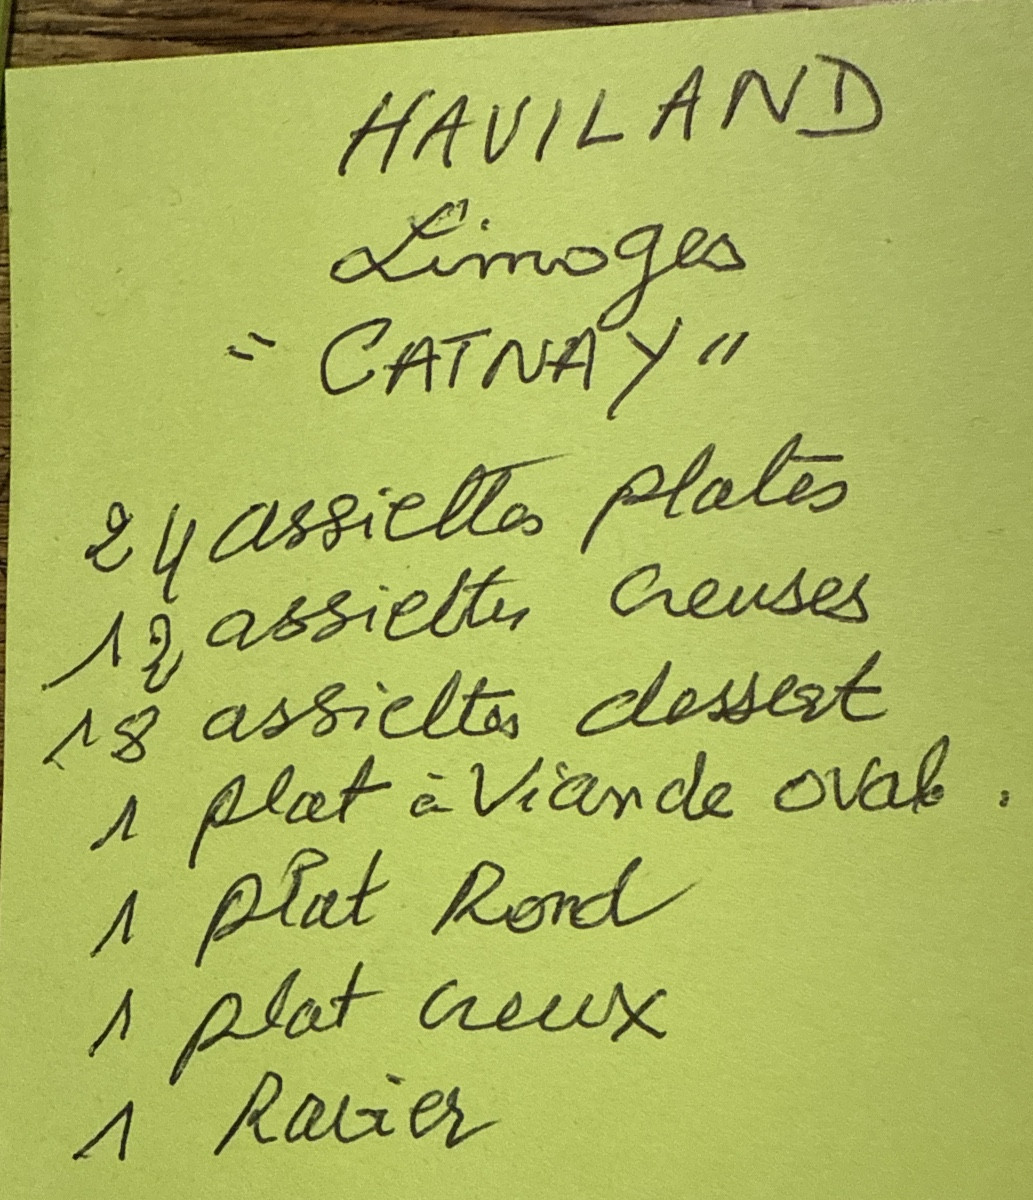 HAVILAND
Limoges
"CATNAY"
24 assiettes plates
12 assiettes creuses
18 assiettes dessert
1 plat à Viande ovale.
1 plat Rond
1 plat creux
1 Ravier